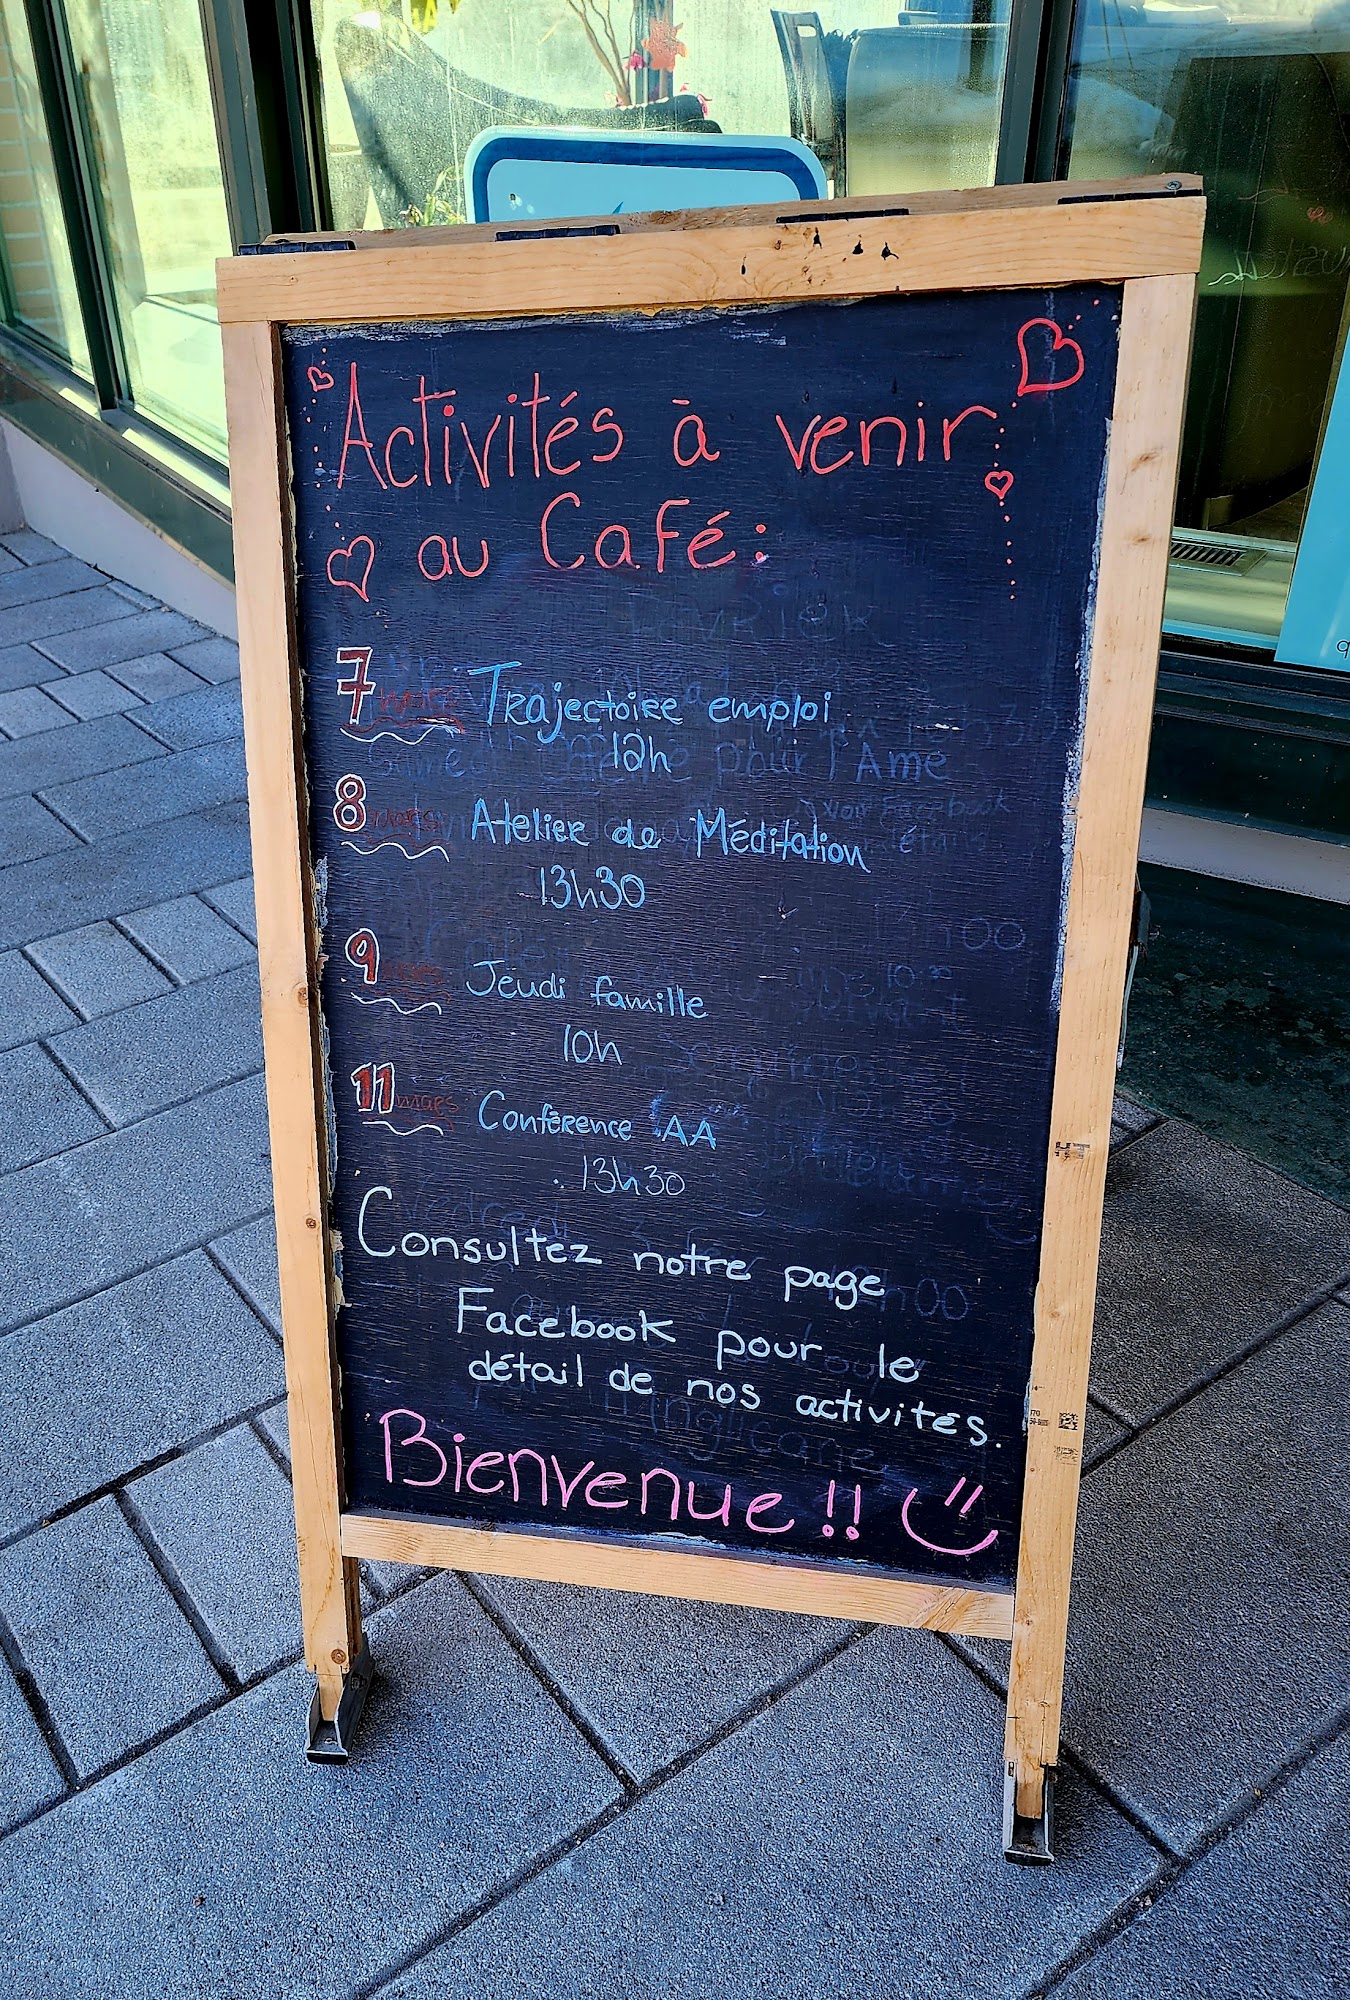 Activités à venir
au Café:
7 mars Trajectoire emploi
12h
8 mars Atelier de Méditation
13h30
9 mars Jeudi famille
10h
11 mars Conférence AA
13h30
Consultez notre page
Facebook pour le
détail de nos activités.
Bienvenue!!